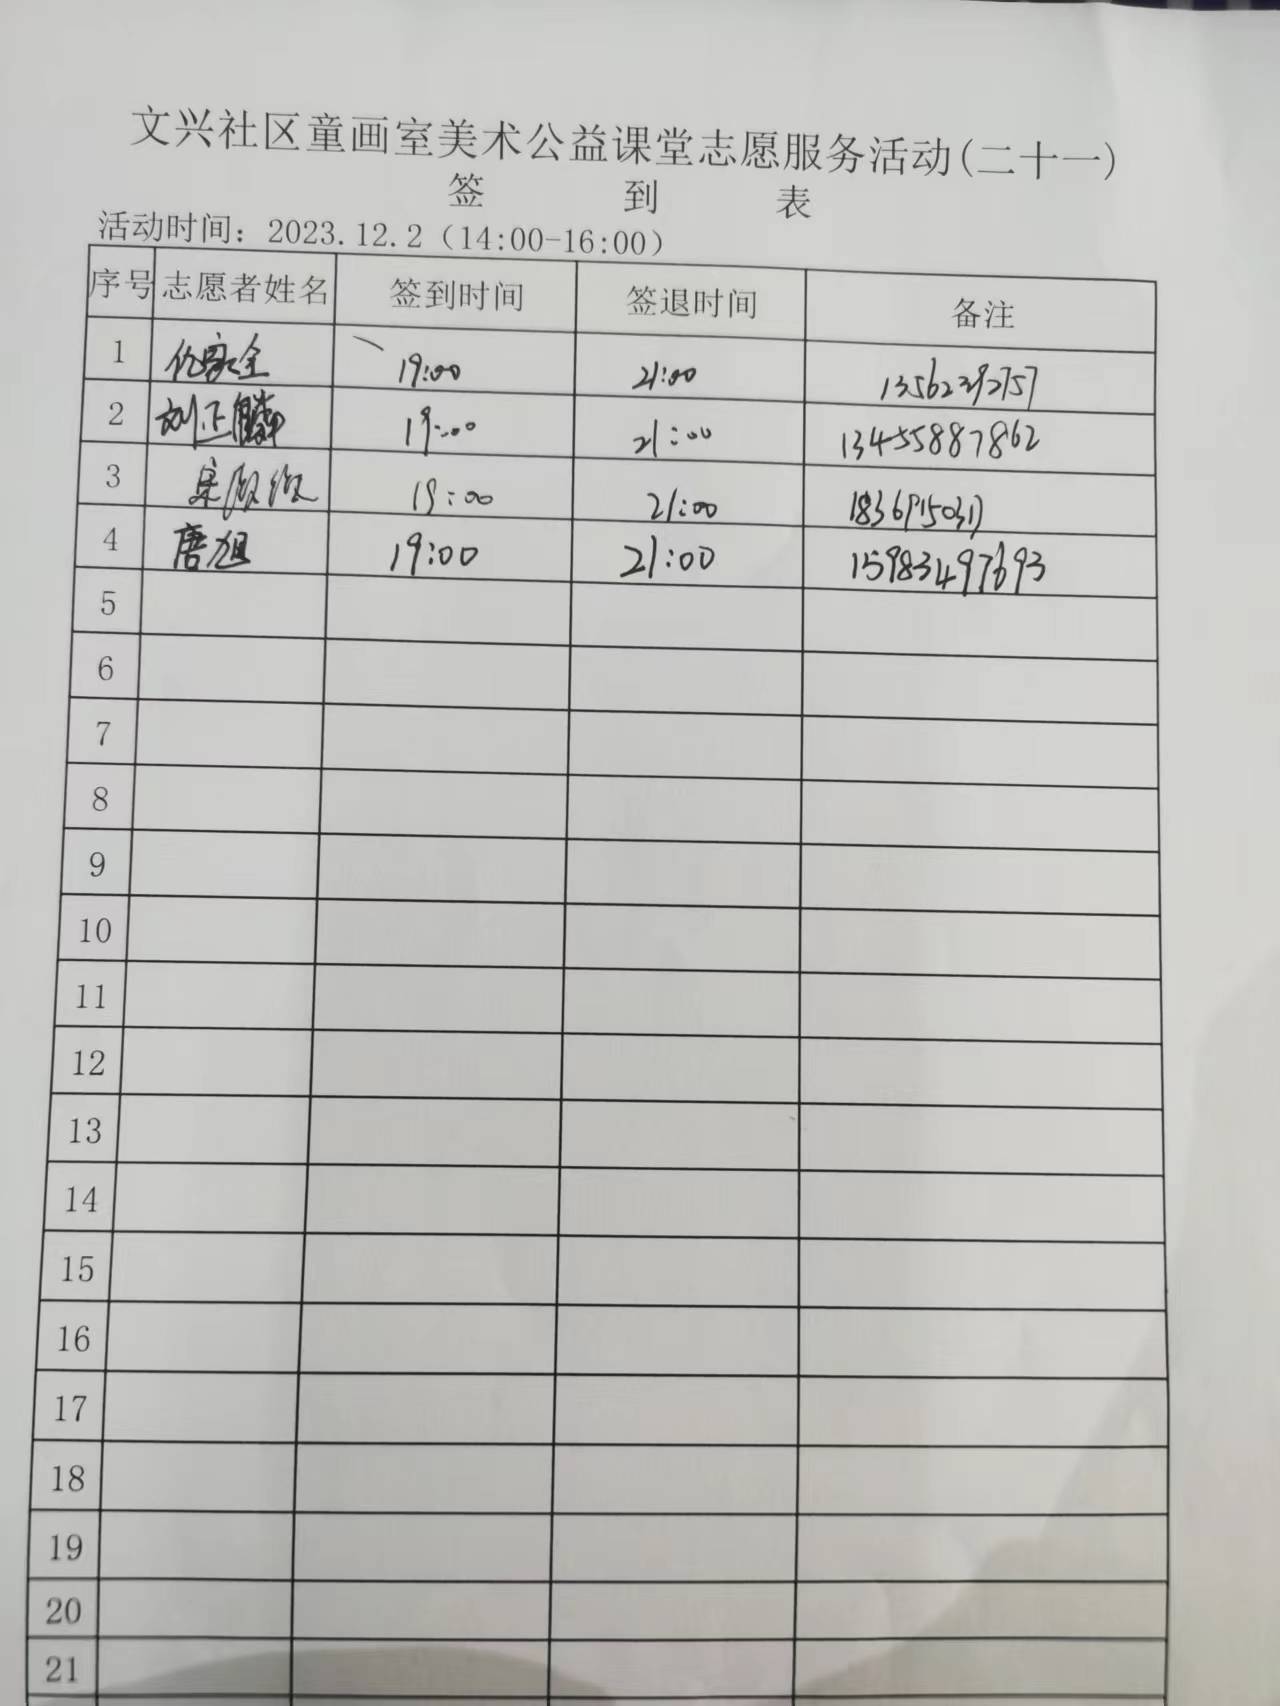 文兴社区童画室美术公益课堂志愿服务活动(二十一)
签 到 表
活动时间：2023.12.2（14:00-16:00）
序号 志愿者姓名 签到时间 签退时间 备注
1 19:00 21:00 13562392757
2 刘正麟 19:00 21:00 13455887862
3 19:00 21:00
4 唐旭 19:00 21:00 15983497693
5
6
7
8
9
10
11
12
13
14
15
16
17
18
19
20
21